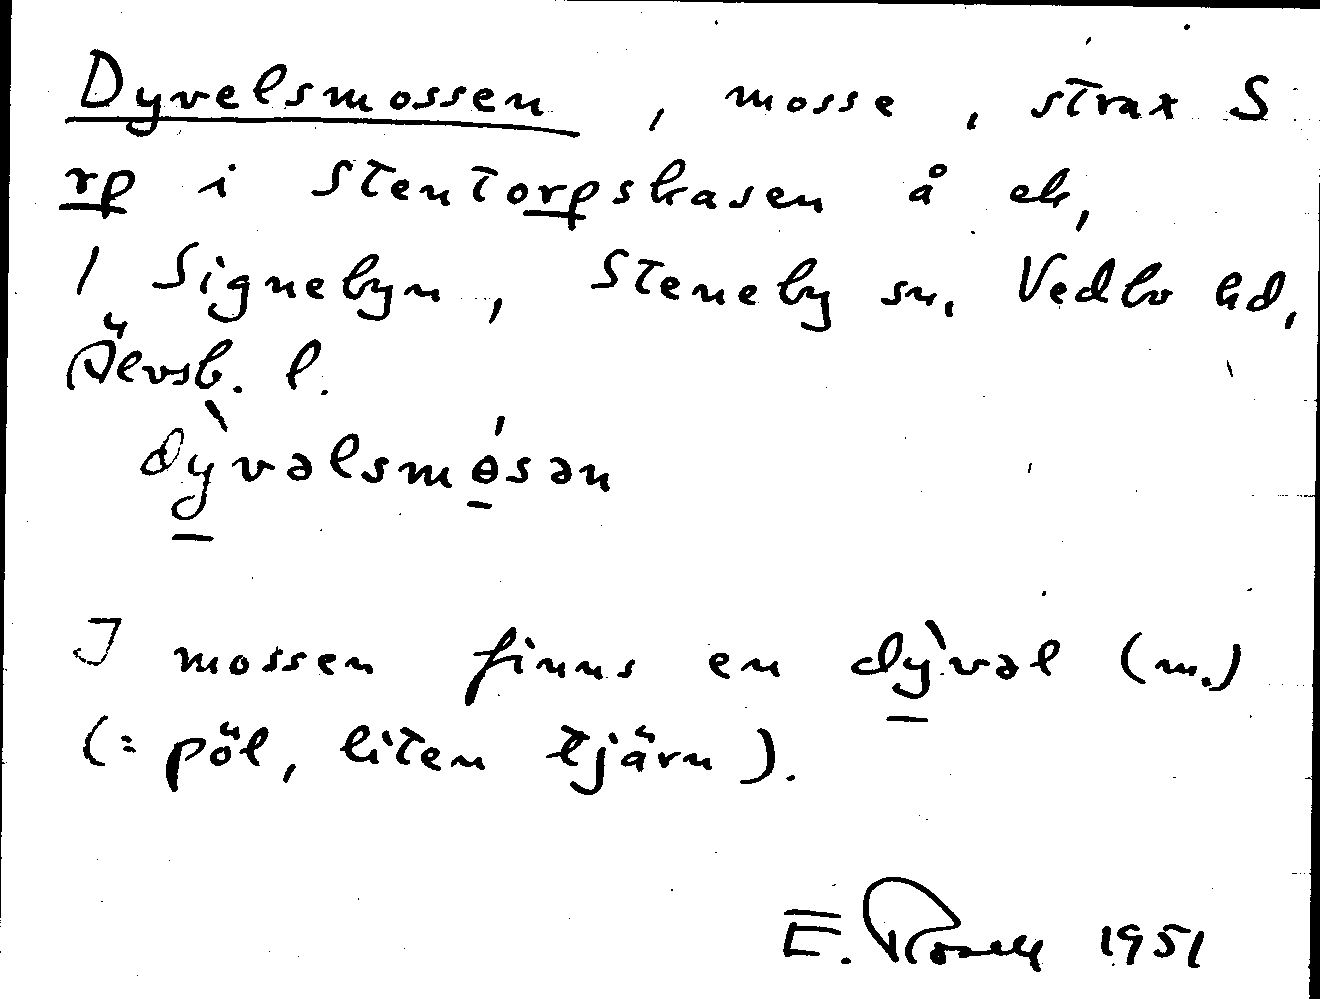 Dyvelsmossen, mosse, strax S
rp i Stentorpskasen å ek,
1 Signebyn, Steneby sn, Vedbo hd,
Älvsb. l.
dỳvəlsmɵ́sən
I mossen finns en dỳvəl (m.)
(= pöl, liten tjärn).
E. Rosell 1951